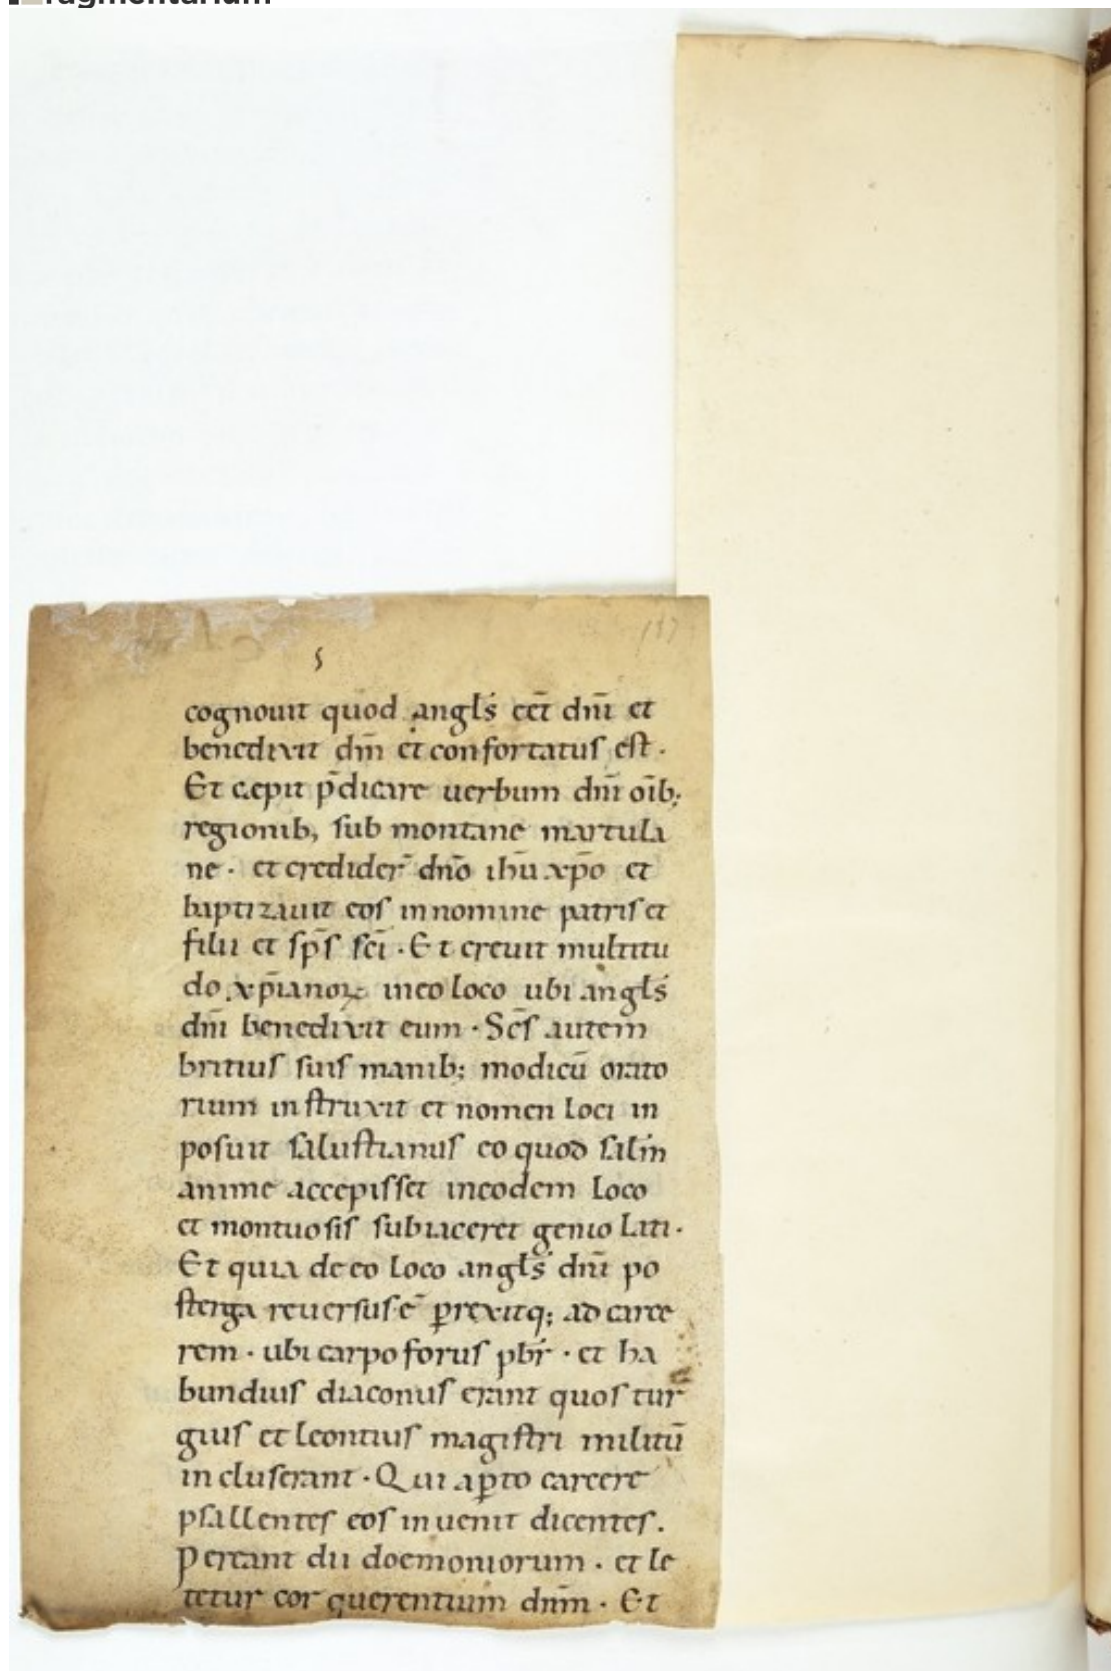 fragmentarium
187
s
cognouit quod angl̄s eēt dn̄i et
benedixit dn̄m et confortatus est.
Et cępit p̄dicare uerbum dn̄i oīb;
regionib; sub montane martula
ne · et credider̄ dn̄o ihū xp̄o et
baptizauit eos in nomine patris et
filii et sp̄s sc̄i · Et creuit multitu
do xp̄ianoꝝ in eo loco ubi angl̄s
dn̄i benedixit eum · Sc̄s autem
britius suis manib; modicū orato
rium instruxit et nomen loci in
posuit salustianus eo quod salūt̄
anime accepisset in eodem loco
et montuosis subiaceret genio lati ·
Et quia de eo loco angl̄s dn̄i po
sterga reuersus ē ꝑrexitq; ad carce
rem · ubi carpoforus pbr̄ · et ha
bundius diaconus erant quos tur
gius et leontius magistri militū
incluserant · Qui aꝑto carcere
psallentes eos inuenit dicentes.
Pereant dii doemoniorum · et le
tetur cor querentium dn̄m · Et